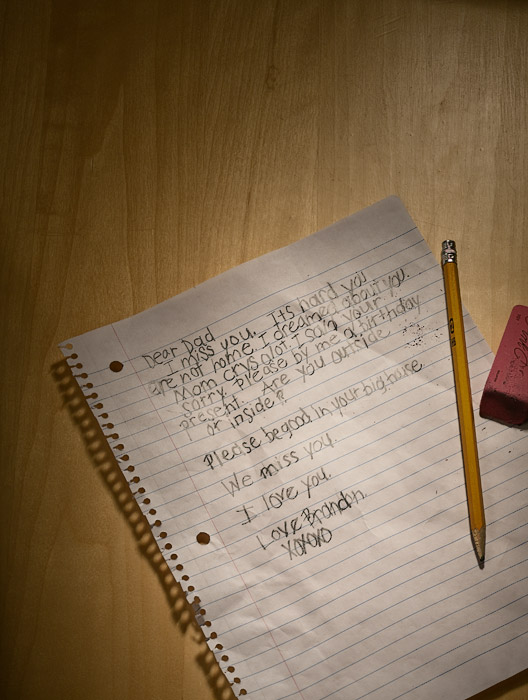 Dear Dad
I miss you. Its hard you
are not home. I dreamed about you.
Mom crys alot. I said your
sorry. Please by me a birthday
present. Are you outside
or inside?
Please be good in your big house
We miss you.
I love you.
Love Brandn
XOXOXO